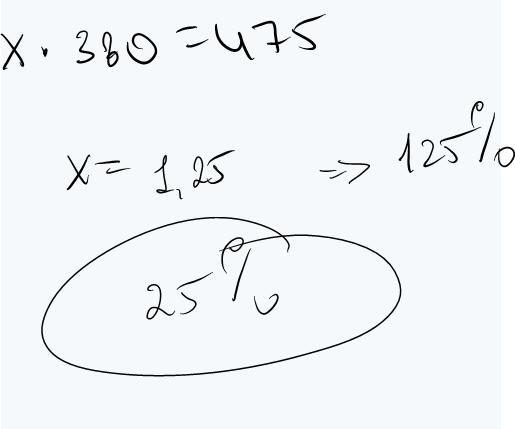 x · 380 = 475
x = 1,25 => 125%
25%